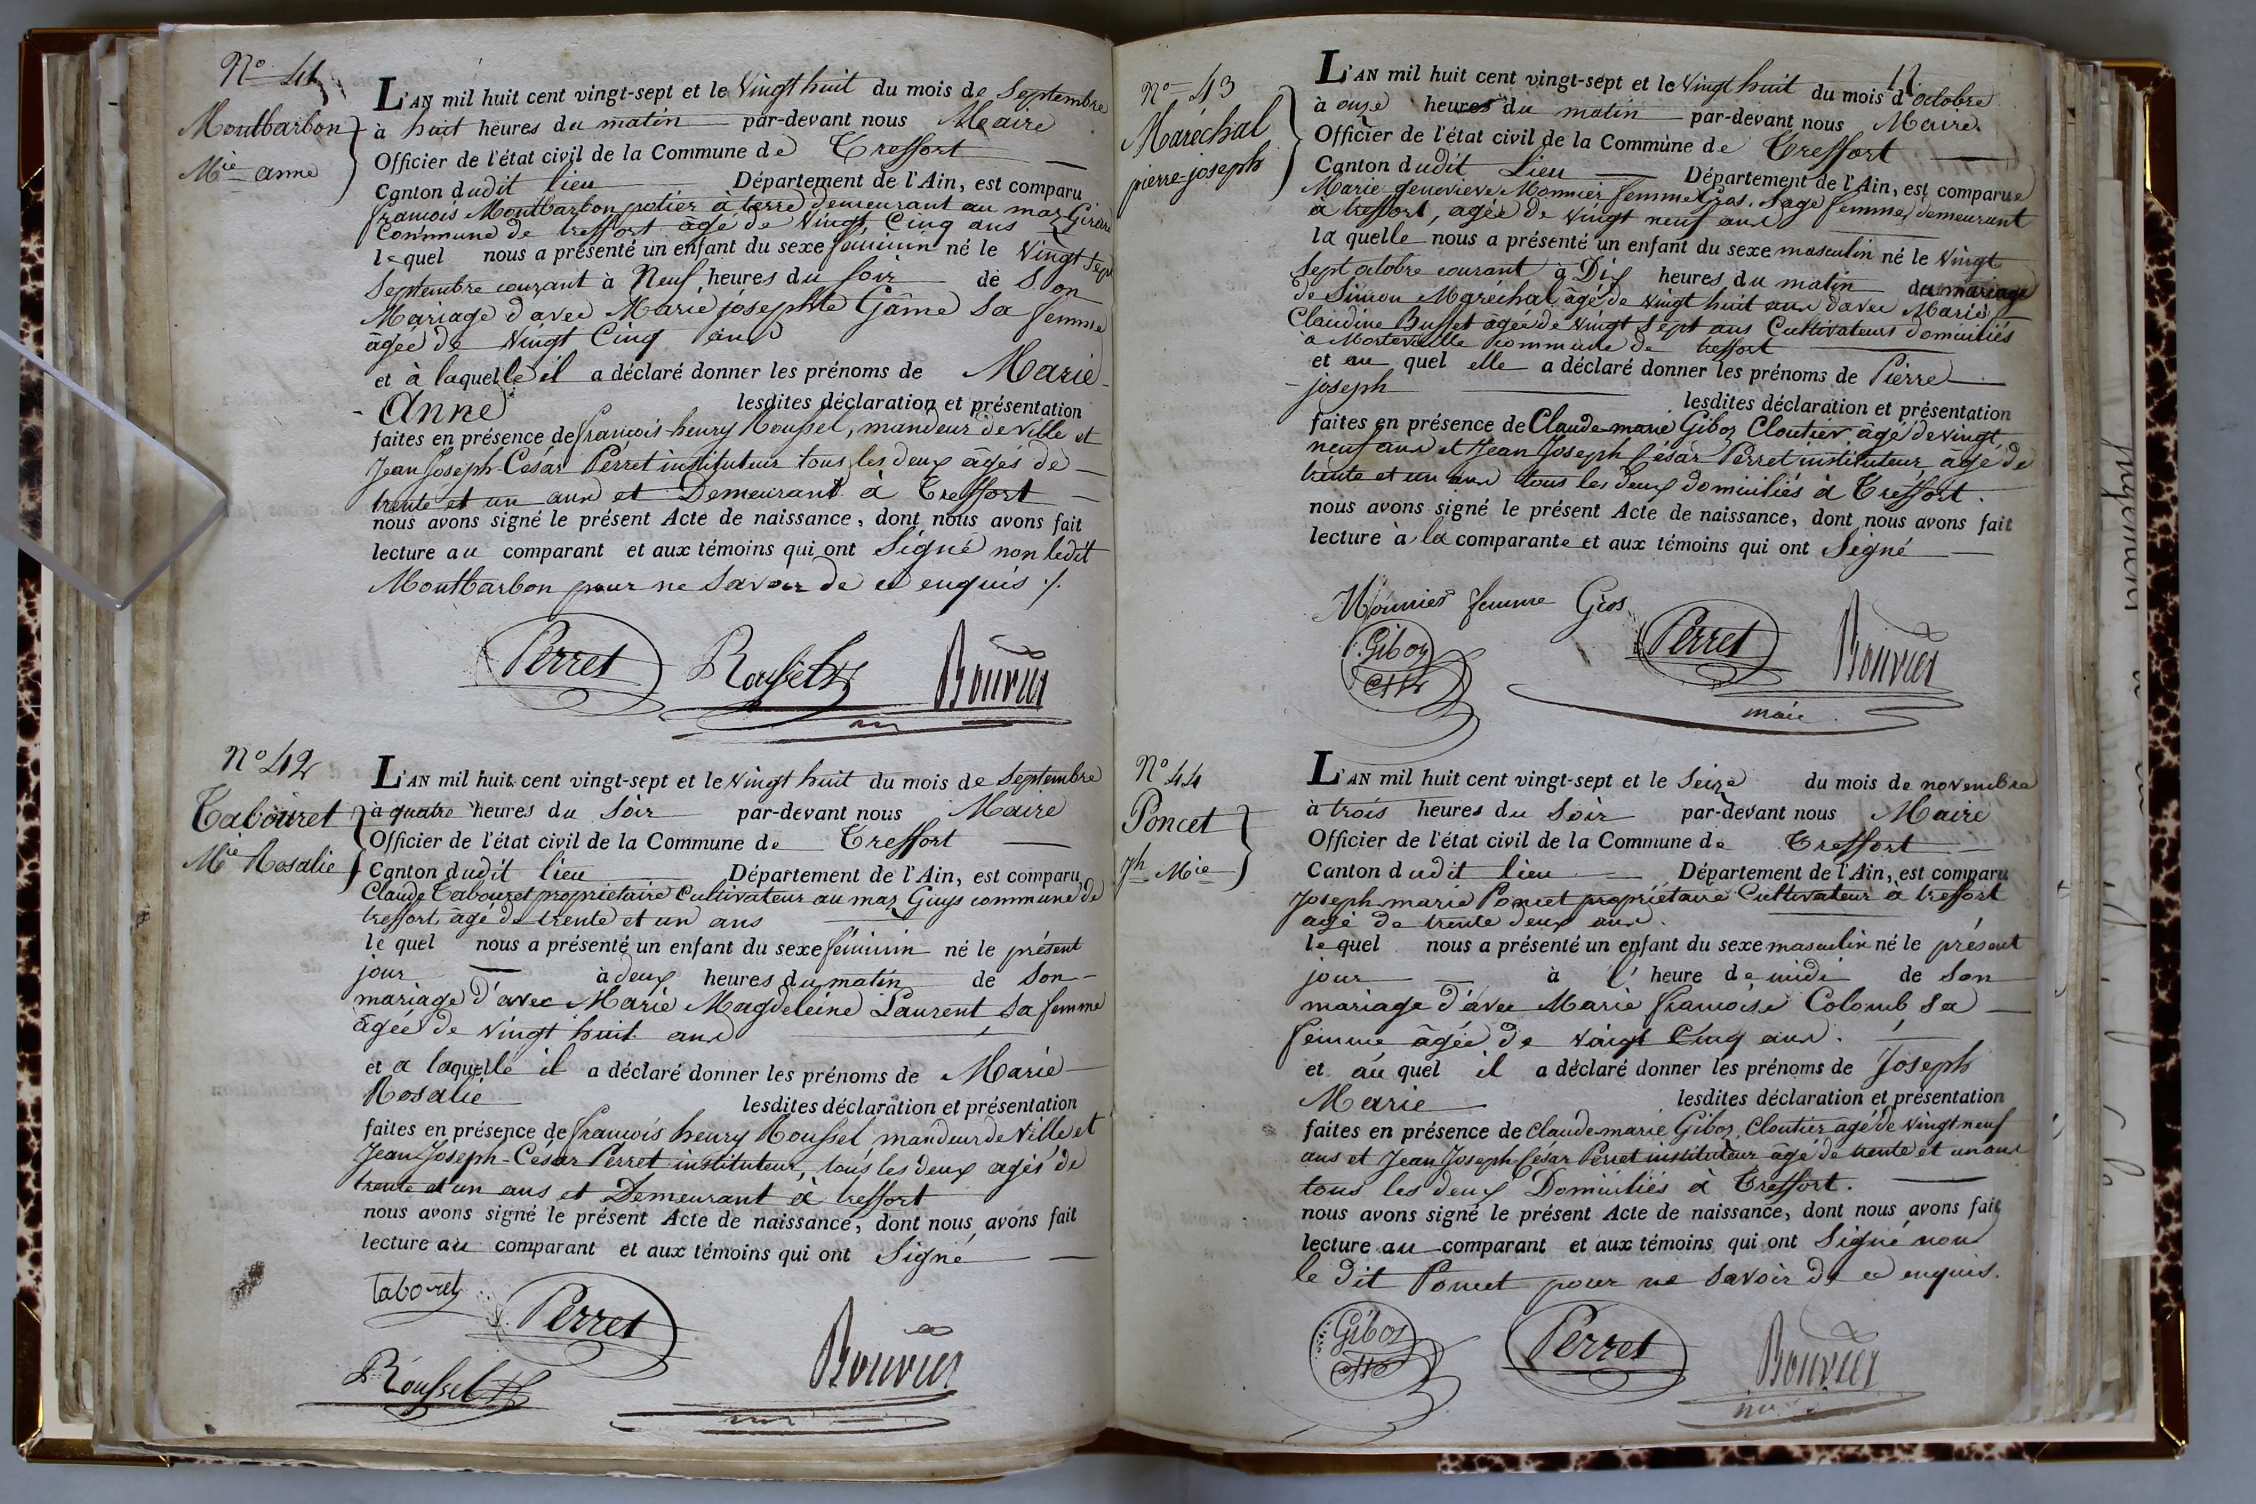 N° 41
Montbarbon
Mie anne
L'AN mil huit cent vingt-sept et le Vingt huit du mois de Septembre
à huit heures du matin par-devant nous Maire
Officier de l'état civil de la Commune de Treffort
Canton dudit lieu Département de l'Ain, est comparu
francois Montbarbon potier à terre demeurant au maz Girard
Commune de treffort âgé de Vingt Cinq ans
lequel nous a présenté un enfant du sexe féminin né le Vingt Sept
Septembre courant à Neuf heures du soir de Son
Mariage d'avec Marie josephte Gâme Sa femme
âgée de Vingt Cinq ans
et à laquelle il a déclaré donner les prénoms de Marie
Anne lesdites déclaration et présentation
faites en présence de francois henry Roussel, mandeur de Ville et
Jean Joseph-César Perret instituteur tous les deux âgés de
trente et un ans et Demeurant à Treffort
nous avons signé le présent Acte de naissance, dont nous avons fait
lecture au comparant et aux témoins qui ont Signé non ledit
Montbarbon pour ne Savoir de ce enquis ./.
Perret Roussel Bouvier
N° 42
Tabouret
Mie Rosalie
L'AN mil huit cent vingt-sept et le Vingt huit du mois de Septembre
à quatre heures du Soir par-devant nous Maire
Officier de l'état civil de la Commune de Treffort
Canton dudit lieu Département de l'Ain, est comparu
Claude Tabouret propriétaire Cultivateur au maz Guys commune de
treffort âgé de trente et un ans
le quel nous a présenté un enfant du sexe féminin né le présent
jour à deux heures du matin de Son
mariage d'avec Marie Magdeleine Laurent Sa femme
âgée de Vingt huit ans
et a laquelle il a déclaré donner les prénoms de Marie
Rosalie lesdites déclaration et présentation
faites en présence de francois henry Roussel, mandeur de Ville et
Jean Joseph-César Perret instituteur, tous les deux agés de
trente et un ans et Demeurant à treffort
nous avons signé le présent Acte de naissance, dont nous avons fait
lecture au comparant et aux témoins qui ont Signé
Tabouret Perret
Roussel Bouvier
N° 43
Maréchal
pierre-joseph
L'AN mil huit cent vingt-sept et le Vingt huit du mois d'octobre
à onze heures du matin par-devant nous Maire
Officier de l'état civil de la Commune de Treffort
Canton dudit Lieu Département de l'Ain, est comparue
Marie genevieve Monnier femme Gros. Sage femme, demeurant
à treffort, agée de vingt neuf ans
la quelle nous a présenté un enfant du sexe masculin né le Vingt
Sept octobre courant à Dix heures du matin du mariage
de Simon Maréchal âgé de Vingt huit ans d'avec Marie
Claudine Buffet âgée de Vingt Sept ans Cultivateurs domiciliés
a Commune de treffort
et au quel elle a déclaré donner les prénoms de Pierre
joseph lesdites déclaration et présentation
faites en présence de Claude-marie Giboz Cloutier âgé de vingt
neuf ans et Jean Joseph César Perret instituteur âgé de
trente et un ans tous les deux domiciliés à Treffort.
nous avons signé le présent Acte de naissance, dont nous avons fait
lecture à la comparante et aux témoins qui ont Signé
Monnier femme Gros
Giboz Perret Bouvier
maire
N° 44
Poncet
Jh Mie
L'AN mil huit cent vingt-sept et le Seize du mois de novembre
à trois heures du Soir par-devant nous Maire
Officier de l'état civil de la Commune de Treffort
Canton dudit lieu Département de l'Ain, est comparu
Joseph marie Poncet propriétaire Cultivateur à treffort
agé de trente deux ans
le quel nous a présenté un enfant du sexe masculin né le présent
jour à l'heure de midi de Son
mariage d'avec Marie francoise Colomb Sa
femme âgée de Vingt Cinq ans.
et au quel il a déclaré donner les prénoms de Joseph
Marie lesdites déclaration et présentation
faites en présence de Claude-marie Giboz, Cloutier âgé de Vingt neuf
ans et Jean Joseph Cesar Perret instituteur âgé de trente et un ans
tous les deux Domiciliés à Treffort.
nous avons signé le présent Acte de naissance, dont nous avons fait
lecture au comparant et aux témoins qui ont Signé non
le dit Poncet pour ne Savoir de ce enquis.
Giboz Perret Bouvier